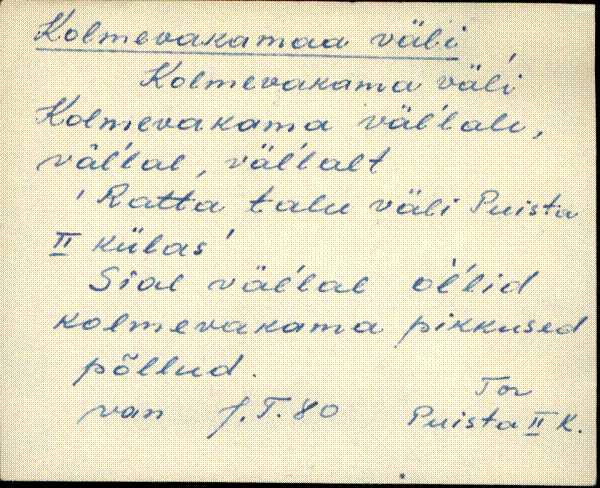 Kolmevakamaa väli
Kolmevakama väl'i
Kolmevakama väl'l'ale,
väl'l'al, väl'l'alt
'Ratta talu väli Puista
II külas'
Sial väl'l'al ol'l'id
kolmevakama pikkused
põllud.
van J.T. 80
Tor
Puista II K.